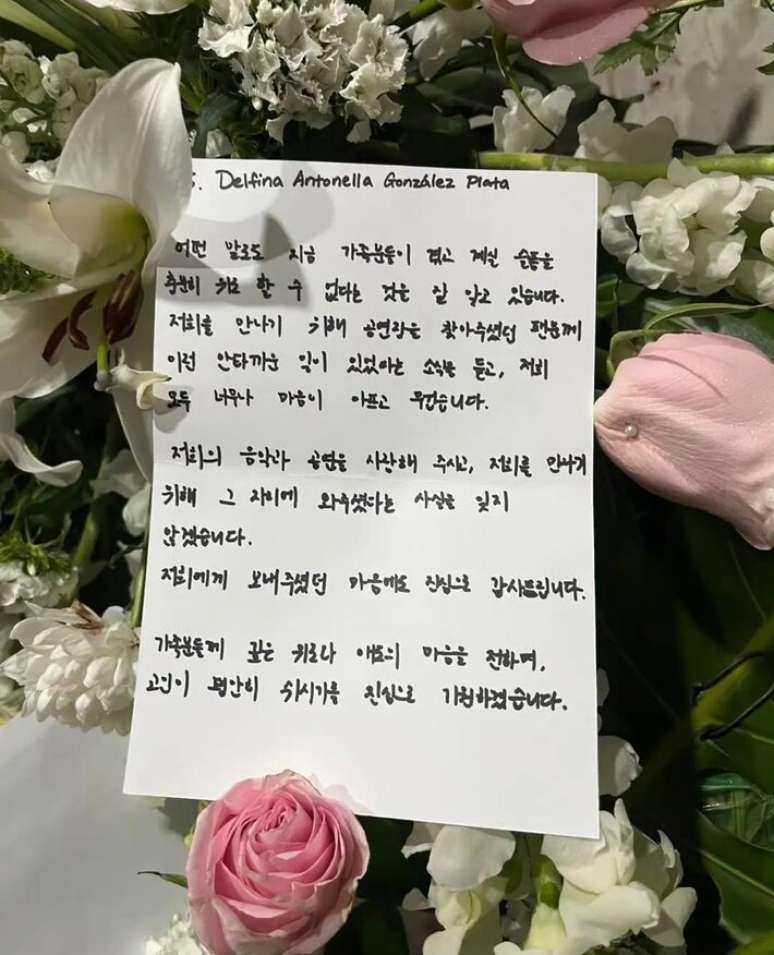 s. Delfina Antonella González Plata
어떤 말로도 지금 가족분들이 겪고 계실 슬픔을
충분히 위로 할 수 없다는 것을 잘 알고 있습니다.
저희를 만나기 위해 공연장을 찾아주셨던 팬분께
이런 안타까운 일이 있었다는 소식을 듣고, 저희
모두 너무나 마음이 아프고 무겁습니다.
저희의 음악과 공연을 사랑해 주시고, 저희를 만나기
위해 그 자리에 와주셨다는 사실을 잊지
않겠습니다.
저희에게 보내주셨던 마음에도 진심으로 감사드립니다.
가족분들께 깊은 위로와 애도의 마음을 전하며,
고인이 평안히 쉬시기를 진심으로 기원하겠습니다.